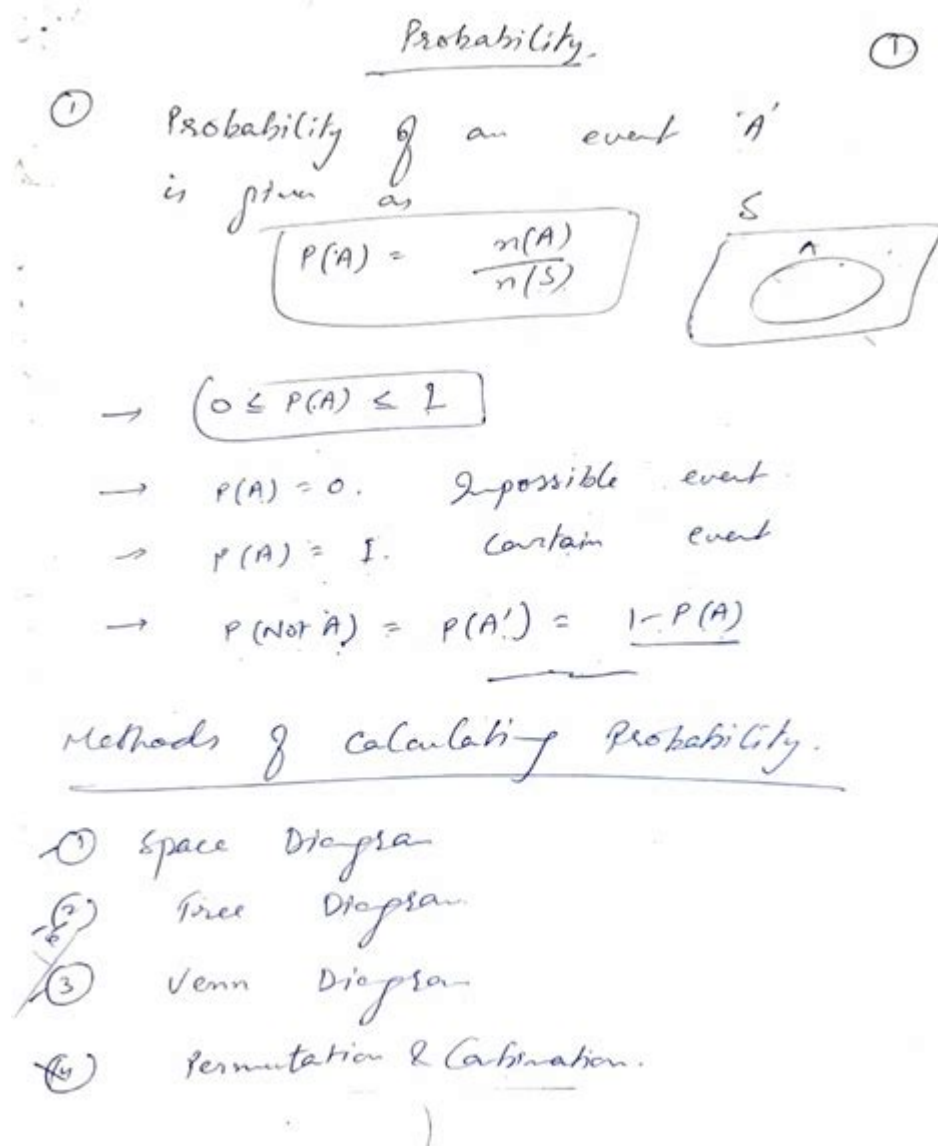 Probability.
①
① Probability of an event 'A'
is given as
P(A) = n(A)/n(S)
S
A
→ 0 ≤ P(A) ≤ 1
→ P(A) = 0. Impossible event.
→ P(A) = 1. Certain event
→ P(Not A) = P(A') = 1-P(A)
Methods of calculating Probability.
① Space Diagram
② Tree Diagram
③ Venn Diagram
④ Permutation & Combination.